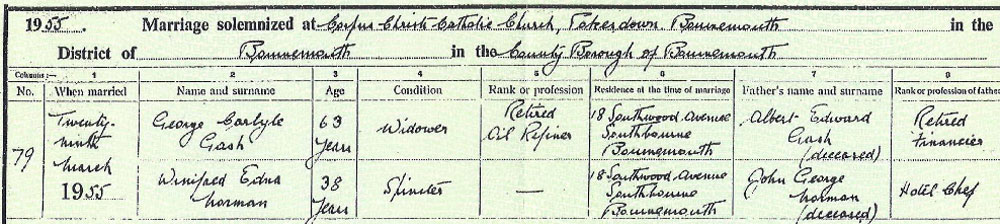 1955. Marriage solemnized at Corpus Christi Catholic Church, Pokesdown Bournemouth in the
District of Bournemouth in the County Borough of Bournemouth
Columns:— 1 2 3 4 5 6 7 8
No. When married Name and surname Age Condition Rank or profession Residence at the time of marriage Father's name and surname Rank or profession of father
79 Twenty-ninth March 1955 George Carlyle Gash 63 Years Widower Retired Oil Refiner 18 Southwood Avenue Southbourne Bournemouth Albert Edward Gash (deceased) Retired Financier
Winifred Edna Norman 38 Years Spinster — 18 Southwood Avenue Southbourne Bournemouth John George Norman (deceased) Hotel Chef